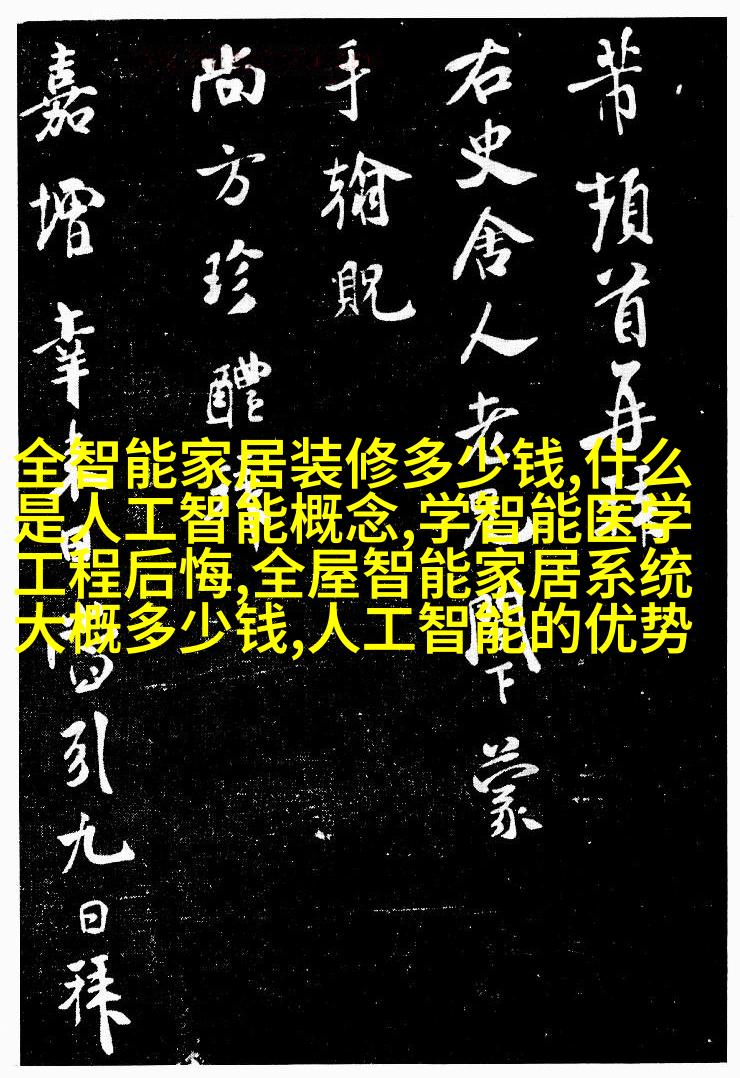 芾頓首再拜
右史舍人老兄閣下蒙
手翰貺
尚方珍醴
嘉增幸來引九日拜
全智能家居装修多少钱,什么
是人工智能概念,学智能医学
工程后悔,全屋智能家居系统
大概多少钱,人工智能的优势